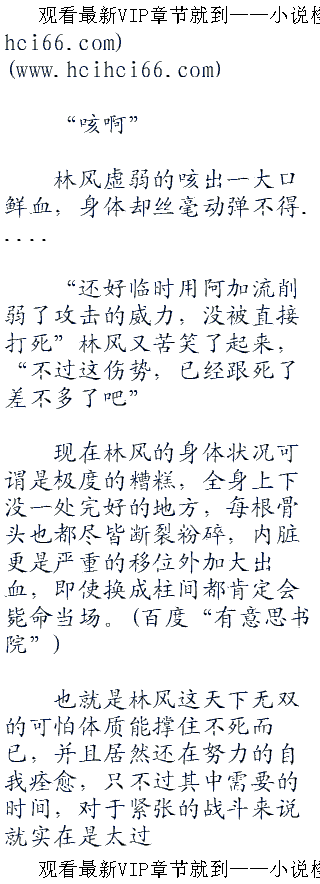 观看最新VIP章节就到——小说
hci66.com)
(www.hcihci66.com)
“咳啊”
林风虚弱的咳出一大口
鲜血，身体却丝毫动弹不得.
....
“还好临时用阿加流削
弱了攻击的威力，没被直接
打死”林风又苦笑了起来，
“不过这伤势，已经跟死了
差不多了吧”
现在林风的身体状况可
谓是极度的糟糕，全身上下
没一处完好的地方，每根骨
头也都尽皆断裂粉碎，内脏
更是严重的移位外加大出
血，即使换成柱间都肯定会
毙命当场。(百度“有意思书
院”)
也就是林风这天下无双
的可怕体质能撑住不死而
已，并且居然还在努力的自
我痊愈，只不过其中需要的
时间，对于紧张的战斗来说
就实在是太过
观看最新VIP章节就到——小说